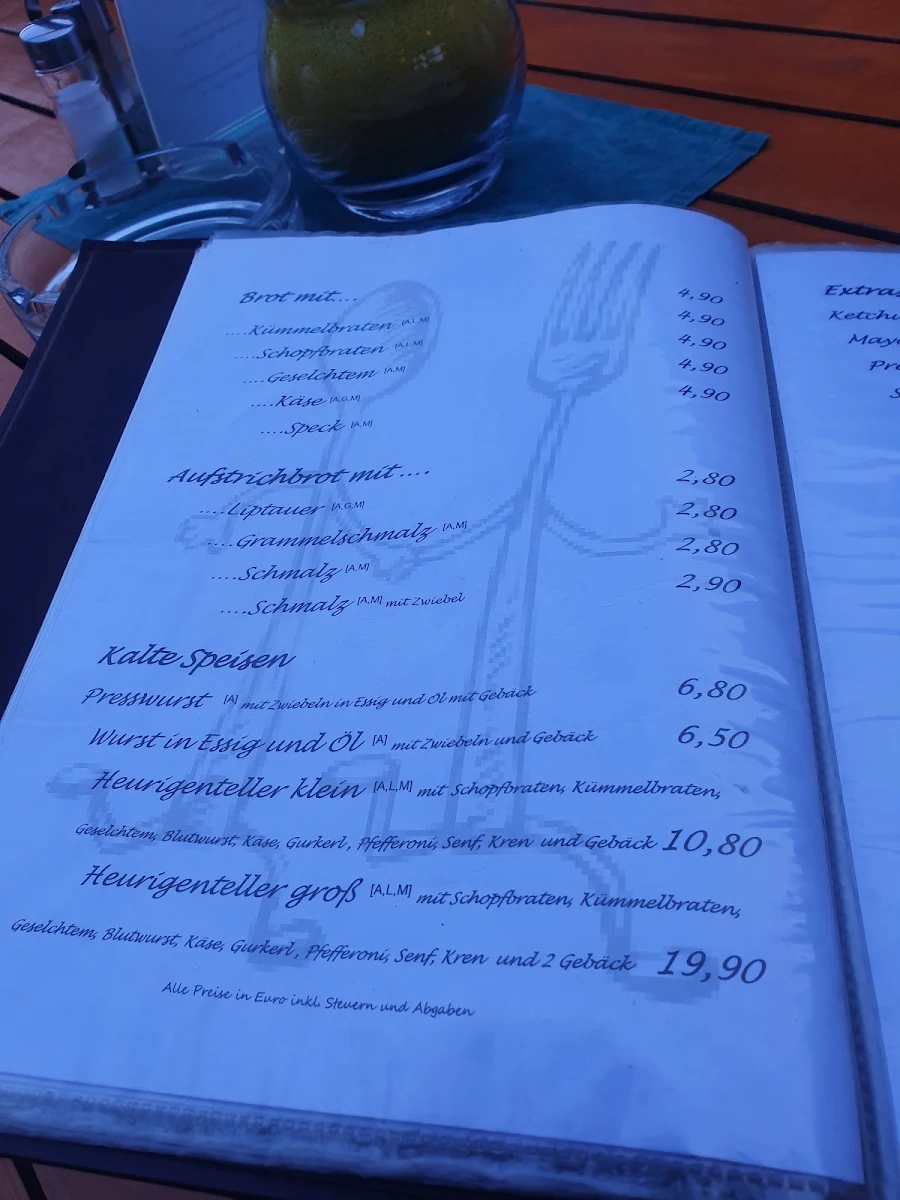 Brot mit....
....Kümmelbraten [A,L,M] 4,90
....Schopfbraten [A,L,M] 4,90
....Geselchtem [A,M] 4,90
....Käse [A,G,M] 4,90
....Speck [A,M] 4,90
Aufstrichbrot mit....
....Liptauer [A,G,M] 2,80
....Grammelschmalz [A,M] 2,80
....Schmalz [A,M] 2,80
....Schmalz [A,M] mit Zwiebel 2,90
Kalte Speisen
Presswurst [A] mit Zwiebeln in Essig und Öl mit Gebäck 6,80
Wurst in Essig und Öl [A] mit Zwiebeln und Gebäck 6,50
Heurigenteller klein [A,L,M] mit Schopfbraten, Kümmelbraten,
Geselchtem, Blutwurst, Käse, Gurkerl, Pfefferoni, Senf, Kren und Gebäck 10,80
Heurigenteller groß [A,L,M] mit Schopfbraten, Kümmelbraten,
Geselchtem, Blutwurst, Käse, Gurkerl, Pfefferoni, Senf, Kren und 2 Gebäck 19,90
Alle Preise in Euro inkl. Steuern und Abgaben
Extras